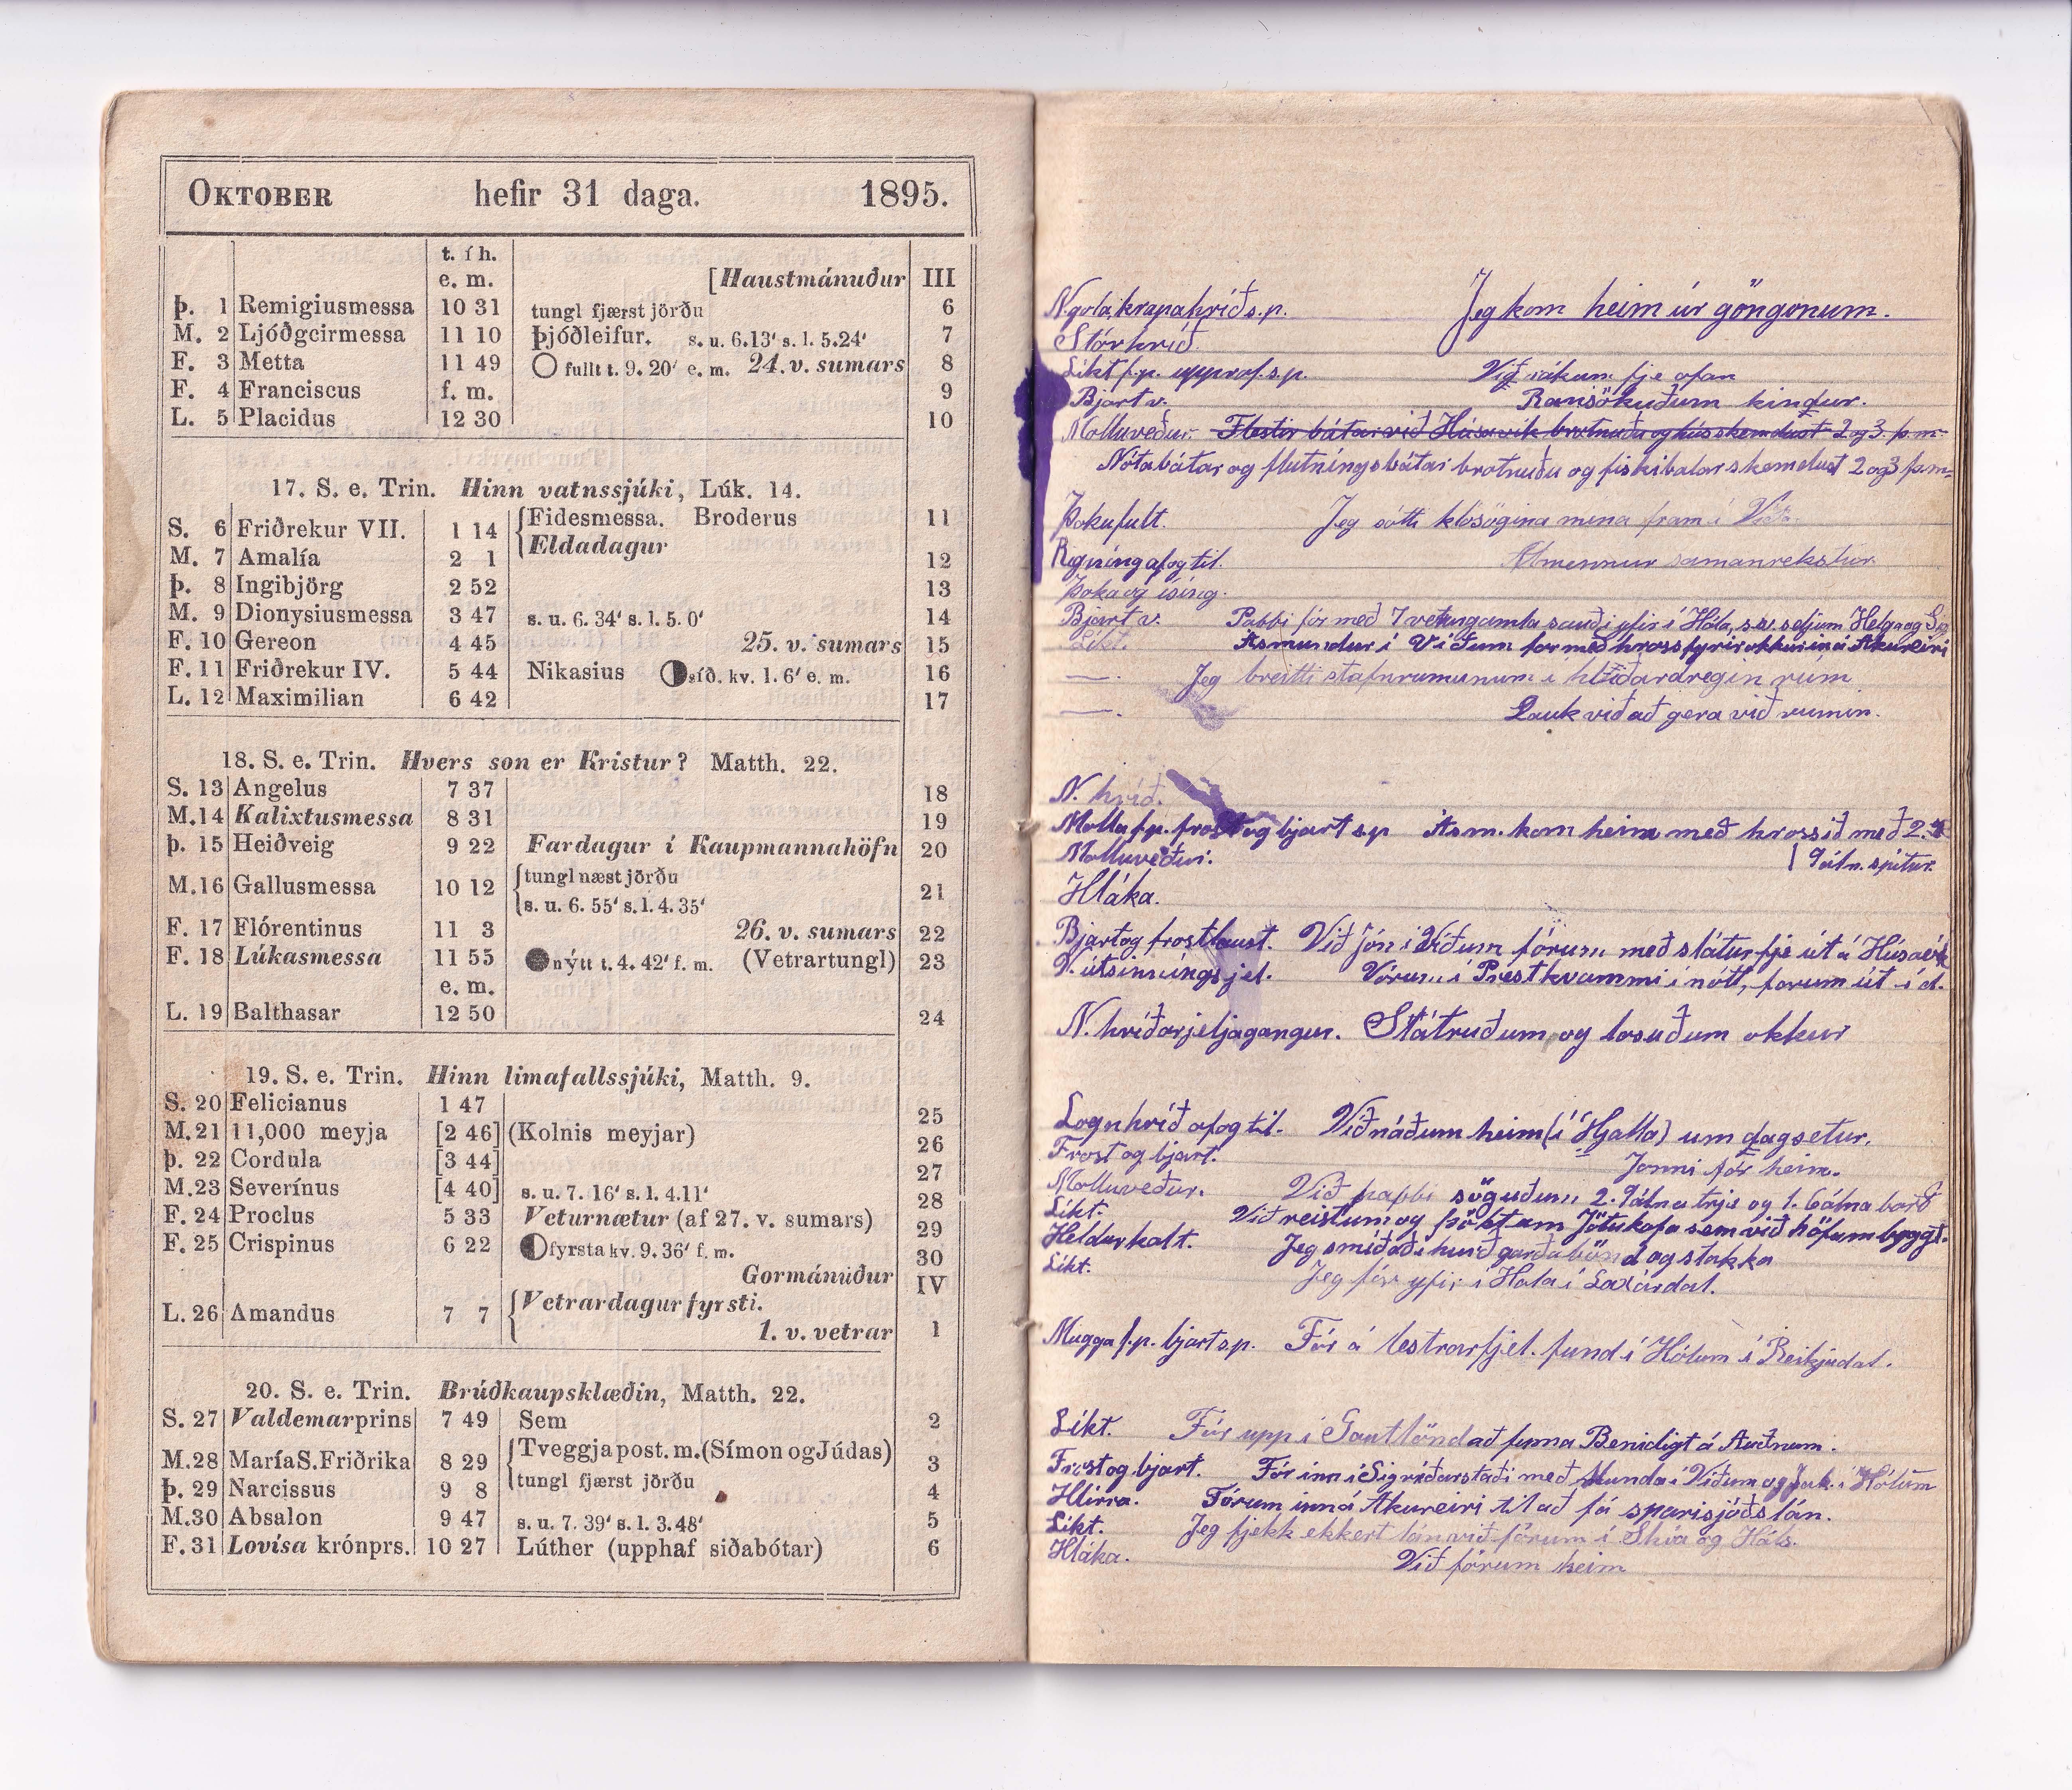 OKTOBER hefir 31 daga. 1895.
t. í h.
e. m. [Haustmánuður III
Þ. 1 Remigiusmessa 10 31 tungl fjærst jörðu 6
M. 2 Ljóðgeirmessa 11 10 Þjóðleifur. s. u. 6.13' s. l. 5.24' 7
F. 3 Metta 11 49 fullt t. 9. 20' e. m. 24. v. sumars 8
F. 4 Franciscus f. m. 9
L. 5 Placidus 12 30 10
17. S. e. Trin. Hinn vatnssjúki, Lúk. 14.
S. 6 Friðrekur VII. 1 14 Fidesmessa. Broderus 11
Eldadagur
M. 7 Amalía 2 1 12
Þ. 8 Ingibjörg 2 52 13
M. 9 Dionysiusmessa 3 47 s. u. 6. 34' s. l. 5. 0' 14
F. 10 Gereon 4 45 25. v. sumars 15
F. 11 Friðrekur IV. 5 44 Nikasius síð. kv. 1. 6' e. m. 16
L. 12 Maximilian 6 42 17
18. S. e. Trin. Hvers son er Kristur? Matth. 22.
S. 13 Angelus 7 37 18
M. 14 Kalixtusmessa 8 31 19
Þ. 15 Heiðveig 9 22 Fardagur í Kaupmannahöfn 20
M. 16 Gallusmessa 10 12 tungl næst jörðu 21
s. u. 6. 55' s. l. 4. 35'
F. 17 Flórentinus 11 3 26. v. sumars 22
F. 18 Lúkasmessa 11 55 nýtt t. 4. 42' f. m. (Vetrartungl) 23
e. m.
L. 19 Balthasar 12 50 24
19. S. e. Trin. Hinn limafallssjúki, Matth. 9.
S. 20 Felicianus 1 47 25
M. 21 11,000 meyja [2 46] (Kolnis meyjar) 26
Þ. 22 Cordula [3 44] 27
M. 23 Severínus [4 40] s. u. 7. 16' s. l. 4.11' 28
F. 24 Proclus 5 33 Veturnætur (af 27. v. sumars) 29
F. 25 Crispinus 6 22 fyrsta kv. 9. 36' f. m. 30
Gormánuður IV
L. 26 Amandus 7 7 Vetrardagur fyrsti.
1. v. vetrar 1
20. S. e. Trin. Brúðkaupsklæðin, Matth. 22.
S. 27 Valdemar prins 7 49 Sem 2
M. 28 María S. Friðrika 8 29 Tveggja post. m. (Símon og Júdas) 3
tungl fjærst jörðu
Þ. 29 Narcissus 9 8 4
M. 30 Absalon 9 47 s. u. 7. 39' s. l. 3.48' 5
F. 31 Lovísa krónprs. 10 27 Lúther (upphaf siðabótar) 6
N.gola, krapahríð s.p. Jeg kom heim úr göngonum.
Stórhríð.
Líkt f.p. upprof. s.p. Við rákum fje ofan
Bjart v. Ransökuðum kindur.
Molluveður. Flestir bátar við Húsavík brotnuðu og hús skemdust 2 og 3. þ.m.
Nótabátar og flutníngsbátar brotnuðu og fiskibatar skemdust 2 og 3 þ.m.
Þokufult. Jeg sótti klösögina mína fram í
Rigníng af og til. Almennur samanrekstur.
Þoka og ísing.
Bjart v. Pabbi fór með 7 veturgamla sauði yfir í Hóla, s.w. seljum Helga og Sig
Líkt. Ásmundur í Víðum for með hross fyrir okkur inn á Akureiri
—. Jeg breitti stafnrumunum í rúm
—. Lauk við að gera við rumin.
N. hríð.
Molla f.p. frost og bjart s.p. Ásm. kom heim með hrossið með 2.
Molluveður. 9 áln. spítur.
Hláka.
Bjart og frostlaust. Við Jón í Víðum fórum með sláturfje út á Húsavík
N. útsinníngsjel. Vórum í Prestkvammi í nótt, forum út í d.
N. hríðarjeljagangur. Slátruðum og losuðum okkur
Lognhríð af og til. Við náðum heim (í Hjalla) um dagsetur.
Frost og bjart. Jonni fór heim.
Molluveður. Við pabbi söguðum 2. 9 álna trje og 1. 6 álna borð
Líkt. Við reistum og þöktum Jötukofa sem við höfum byggt.
Heldur kalt. Jeg smiðaði hurð garðabönd og stokka
Líkt. Jeg fór yfir í Hola í Laxárdal.
Mugga f.p. bjart s.p. Fór á lestrarfjel. fund í Hólum í Reikjadal.
Líkt. Fór upp í Gautlönd að finna Benidigt á Auðnum.
Frost og bjart. Fór inn í Sigríðarstaði með Munda í Víðum og Jak. í Hólum
Hlírra. Fórum inn á Akureiri til að fá sparisjóðslán.
Líkt. Jeg fjekk ekkert lán við fórum í Skóa og Háls.
Hláka. Við fórum heim